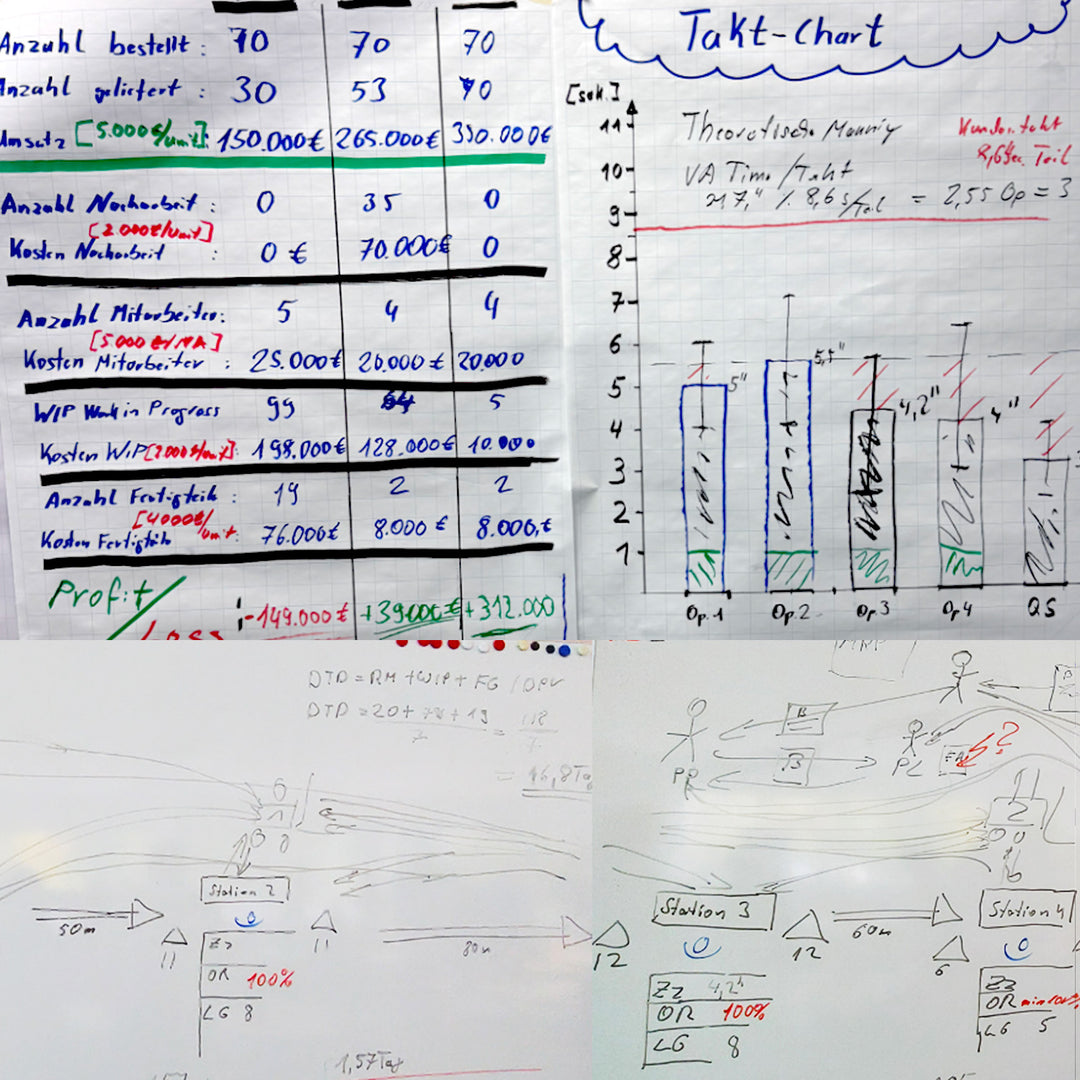 Anzahl bestellt: 70 70 70
Anzahl geliefert: 30 53 70
Umsatz [5.000€/unit]: 150.000€ 265.000€ 350.000€
Anzahl Nacharbeit: 0 35 0
[2.000€/Unit]
Kosten Nacharbeit: 0 € 70.000€ 0
Anzahl Mitarbeiter: 5 4 4
[5.000 €/MA]
Kosten Mitarbeiter: 25.000€ 20.000€ 20.000
WIP Work in Progress 99 64 5
Kosten WiP [2000€/unit]: 198.000€ 128.000€ 10.000
Anzahl Fertigteile: 19 2 2
[4000€/unit]
Kosten Fertigteile: 76.000€ 8.000 € 8.000,€
Profit/
Loss
-149.000€ +39.000€ +312.000
Takt-Chart
[sek.]
Theoretische
VA Time/Takt
8,6 s/ = 2,55 Op = 3
11
10
9
8
7
6
5
4
3
2
1
5"
4,2"
4"
Op.1 Op.2 Op3 Op4 QS
DTD = RM + WIP + FG /
DTD = 20+ + 19
= 16,8 Tag
50m
11
Station 2
0
ZZ
OR 100%
LG 8
11
80m
1,57Tag
PL
12
Station 3
0
ZZ 4,2"
OR 100%
LG 8
12
60m
6
Station 4
0
ZZ
OR
LG 5